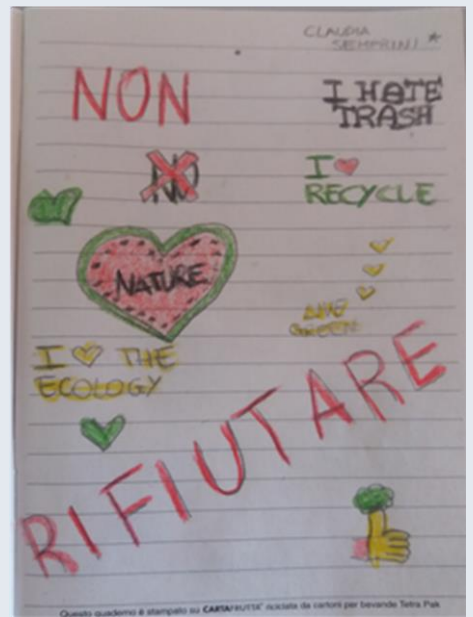 CLAUDIA
SEMPRINI
NON
I HATE
TRASH
NO
I ❤ RECYCLE
NATURE
GREEN
I ❤ THE
ECOLOGY
RIFIUTARE
Questo quaderno è stampato su CARTAFRUTTA® riciclata da cartoni per bevande Tetra Pak